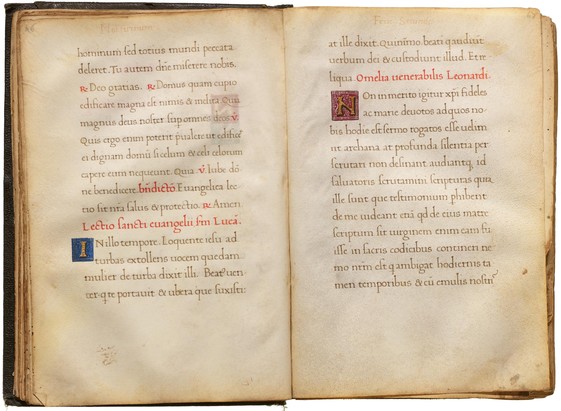 hominum sed totius mundi peccata
deleret. Tu autem dñe miserere nobis.
℟ Deo gratias. ℟ Domus quam cupio
edificare magna est nimis & inclita Quia
magnus deus noster sup omnes deos ℣.
Quis ergo enim poterit preualere ut edificet
ei dignam domū si celum & celi celorum
capere eum nequeunt. Quia ℣ Iube dō
ne benedicere. bñdictō Euangelica lec
tio sit nr̄a salus & protectio. ℟ Amen
Lectio sancti euangelii sm Lucā.
IN illo tempore. Loquente iesu ad
turbas extollens uocem quedam
mulier de turba dixit illi. Beat' uen
ter q te portauit & ubera que suxisti:
at ille dixit. Quinimo beati q audiūt
uerbum dei & custodiunt illud. Et re
liqua. Omelia uenerabilis Leonardi.
NOn in merito igitur xp̄i fideles
ac mane deuotos adquos no
bis hodie est sermo rogatos esse uelim
ut archana at profunda silentia per
scrutari non desinant. audiantq. id
saluatoris scrutimini scripturas quia
ille sunt que testimonium phibent
de me uideant enā qd de eius matre
scriptum sit uirginem enim eam fu
isse in sacris codicibus contineri ne
mo nrm est q ambigat hodiernis ta
men temporibus & cū emulis nostris